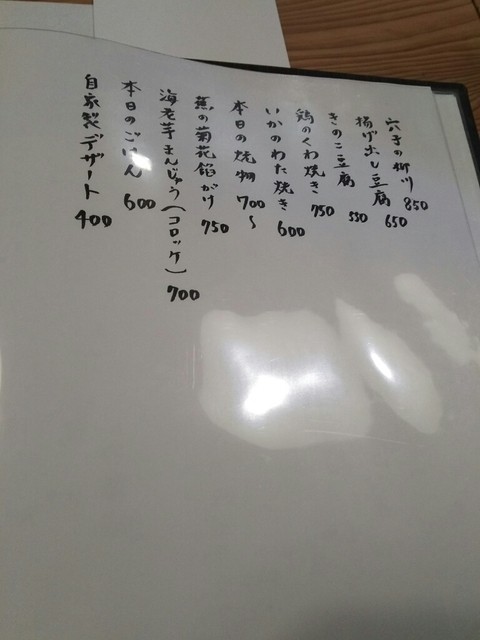 穴子の柳川 850
揚げ出し豆腐 650
きのこ豆腐 550
鶏のくわ焼き 750
いかのわた焼き 600
本日の焼物 700〜
蕪の菊花餡かけ 750
海老芋まんじゅう(コロッケ) 700
本日のごはん 600
自家製デザート 400